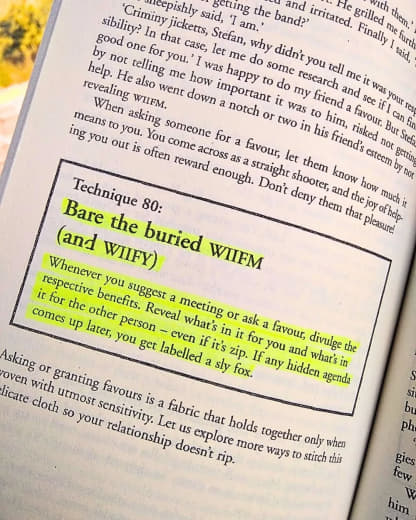 with them.
and irritated. He grilled me furt
sheepishly said, 'I am.'
getting the band?'
Finally I said,
'Criminy jicketts, Stefan, why didn't you tell me it was your
sibility? In that case, let me do some research and see if I can fin
good one for you.' I was happy to do my friend a favour. But Stefa
by not telling me how important it was to him, risked not getting
help. He also went down a notch or two in his friend's esteem by not
revealing WIIFM.
When asking someone for a favour, let them know how much it
means to you. You come across as a straight shooter, and the joy of help-
ing you out is often reward enough. Don't deny them that pleasure!
Technique 80:
Bare the buried WIIFM
(and WIIFY)
Whenever you suggest a meeting or ask a favour, divulge the
respective benefits. Reveal what's in it for you and what's in
it for the other person – even if it's zip. If any hidden agenda
comes up later, you get labelled a sly fox.
Asking or granting favours is a fabric that holds together only when
woven with utmost sensitivity. Let us explore more ways to stitch this
delicate cloth so your relationship doesn't rip.
gies
few
him